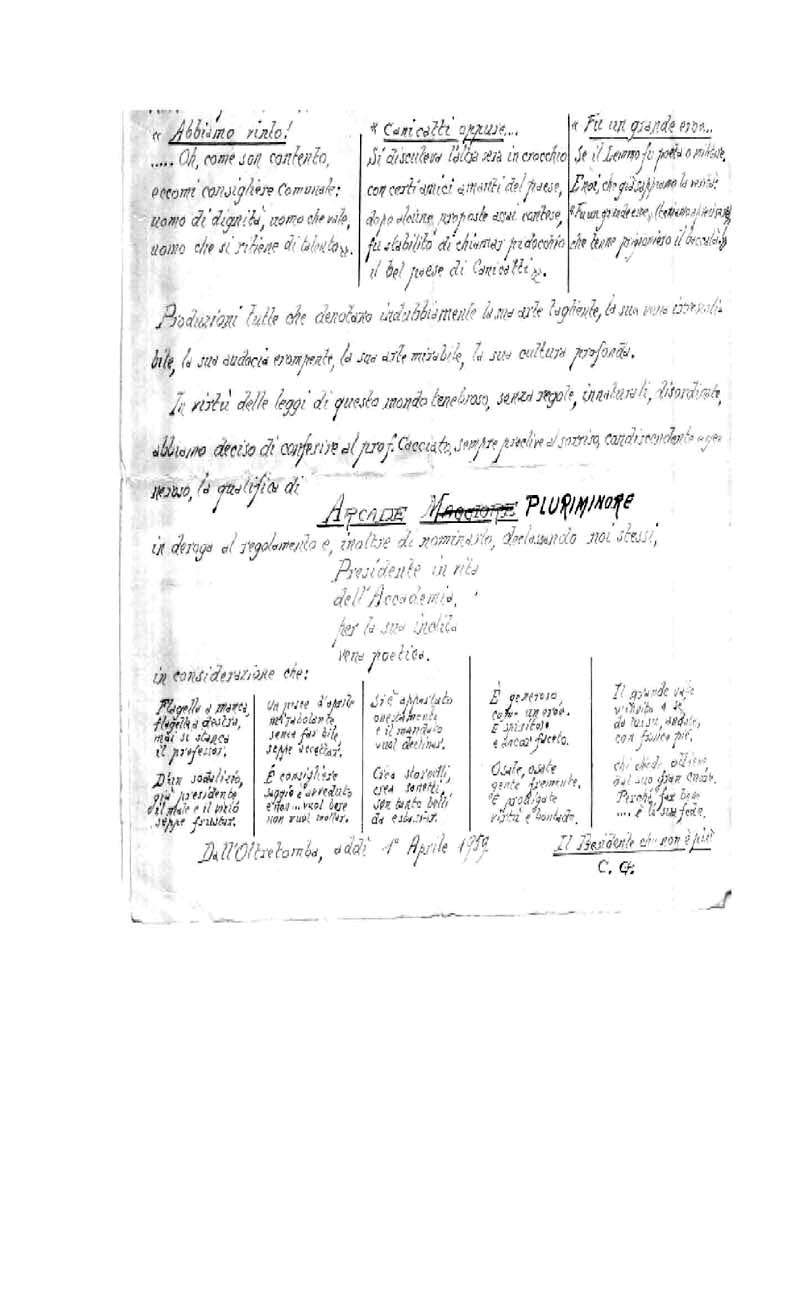 « Abbiamo vinto!
..... Oh, come son contento,
eccomi consigliere Comunale:
uomo di dignità, uomo che vale,
uomo che si ritiene di talento».
« Canicattì oppure...
Si discuteva l'altra sera in crocchio
con certi amici amanti del paese,
dopo alcune proposte assai contese,
fu stabilito di chiamar pidocchio
il bel paese di Canicattì».
« Fu un grande eroe...
Se il Lemmo fu poeta o militare,
E noi, che già sappiamo la verità:
«Fu un grande eroe,
che tenne prigioniero il baccalà»
Produzioni tutte che denotano indubbiamente la sua arte tagliente, la sua vena irresisti-
bile, la sua audacia erompente, la sua arte mirabile, la sua cultura profonda.
In virtù delle leggi di questo mondo tenebroso, senza regole, innaturali, disordinate,
abbiamo deciso di conferire al prof. Cacciato, sempre proclive al sorriso, condiscendente e ge
neroso, la qualifica di
ARCADE MAGGIORE PLURIMINORE
in deroga al regolamento e, inoltre di nominarlo, declassando noi stessi,
Presidente in vita
dell'Accademia,
per la sua inclita
vena poetica.
in considerazione che:
Flagella a manca,
flagella a destra,
mai si stanca
il professor.
D'un sodalizio,
già presidente
il male e il
seppe frustar.
Un pesce d'aprile
mirabolante,
senza far bile,
seppe accettar.
È consigliere
saggio e avveduto
e non ... vuol bere
non vuol mollar.
Si è appostato
onestamente
e il mandato
vuol declinar.
Crea stornelli,
crea sonetti,
son tanto belli
da estasiar.
È generoso,
com' un eroe.
È spiritoso
e ancor faceto.
Osate, osate
gente fremente.
È prodigate
virtù e bontade.
Il grande vate
v'invita a sé
da lui su, andate,
con franco piè.
chi chiede, ottiene,
dal suo gran cuore.
Perché far bene
.... è la sua fede.
Dall'Oltretomba, addì 1° Aprile 1959
Il Presidente che non è più
C. G.